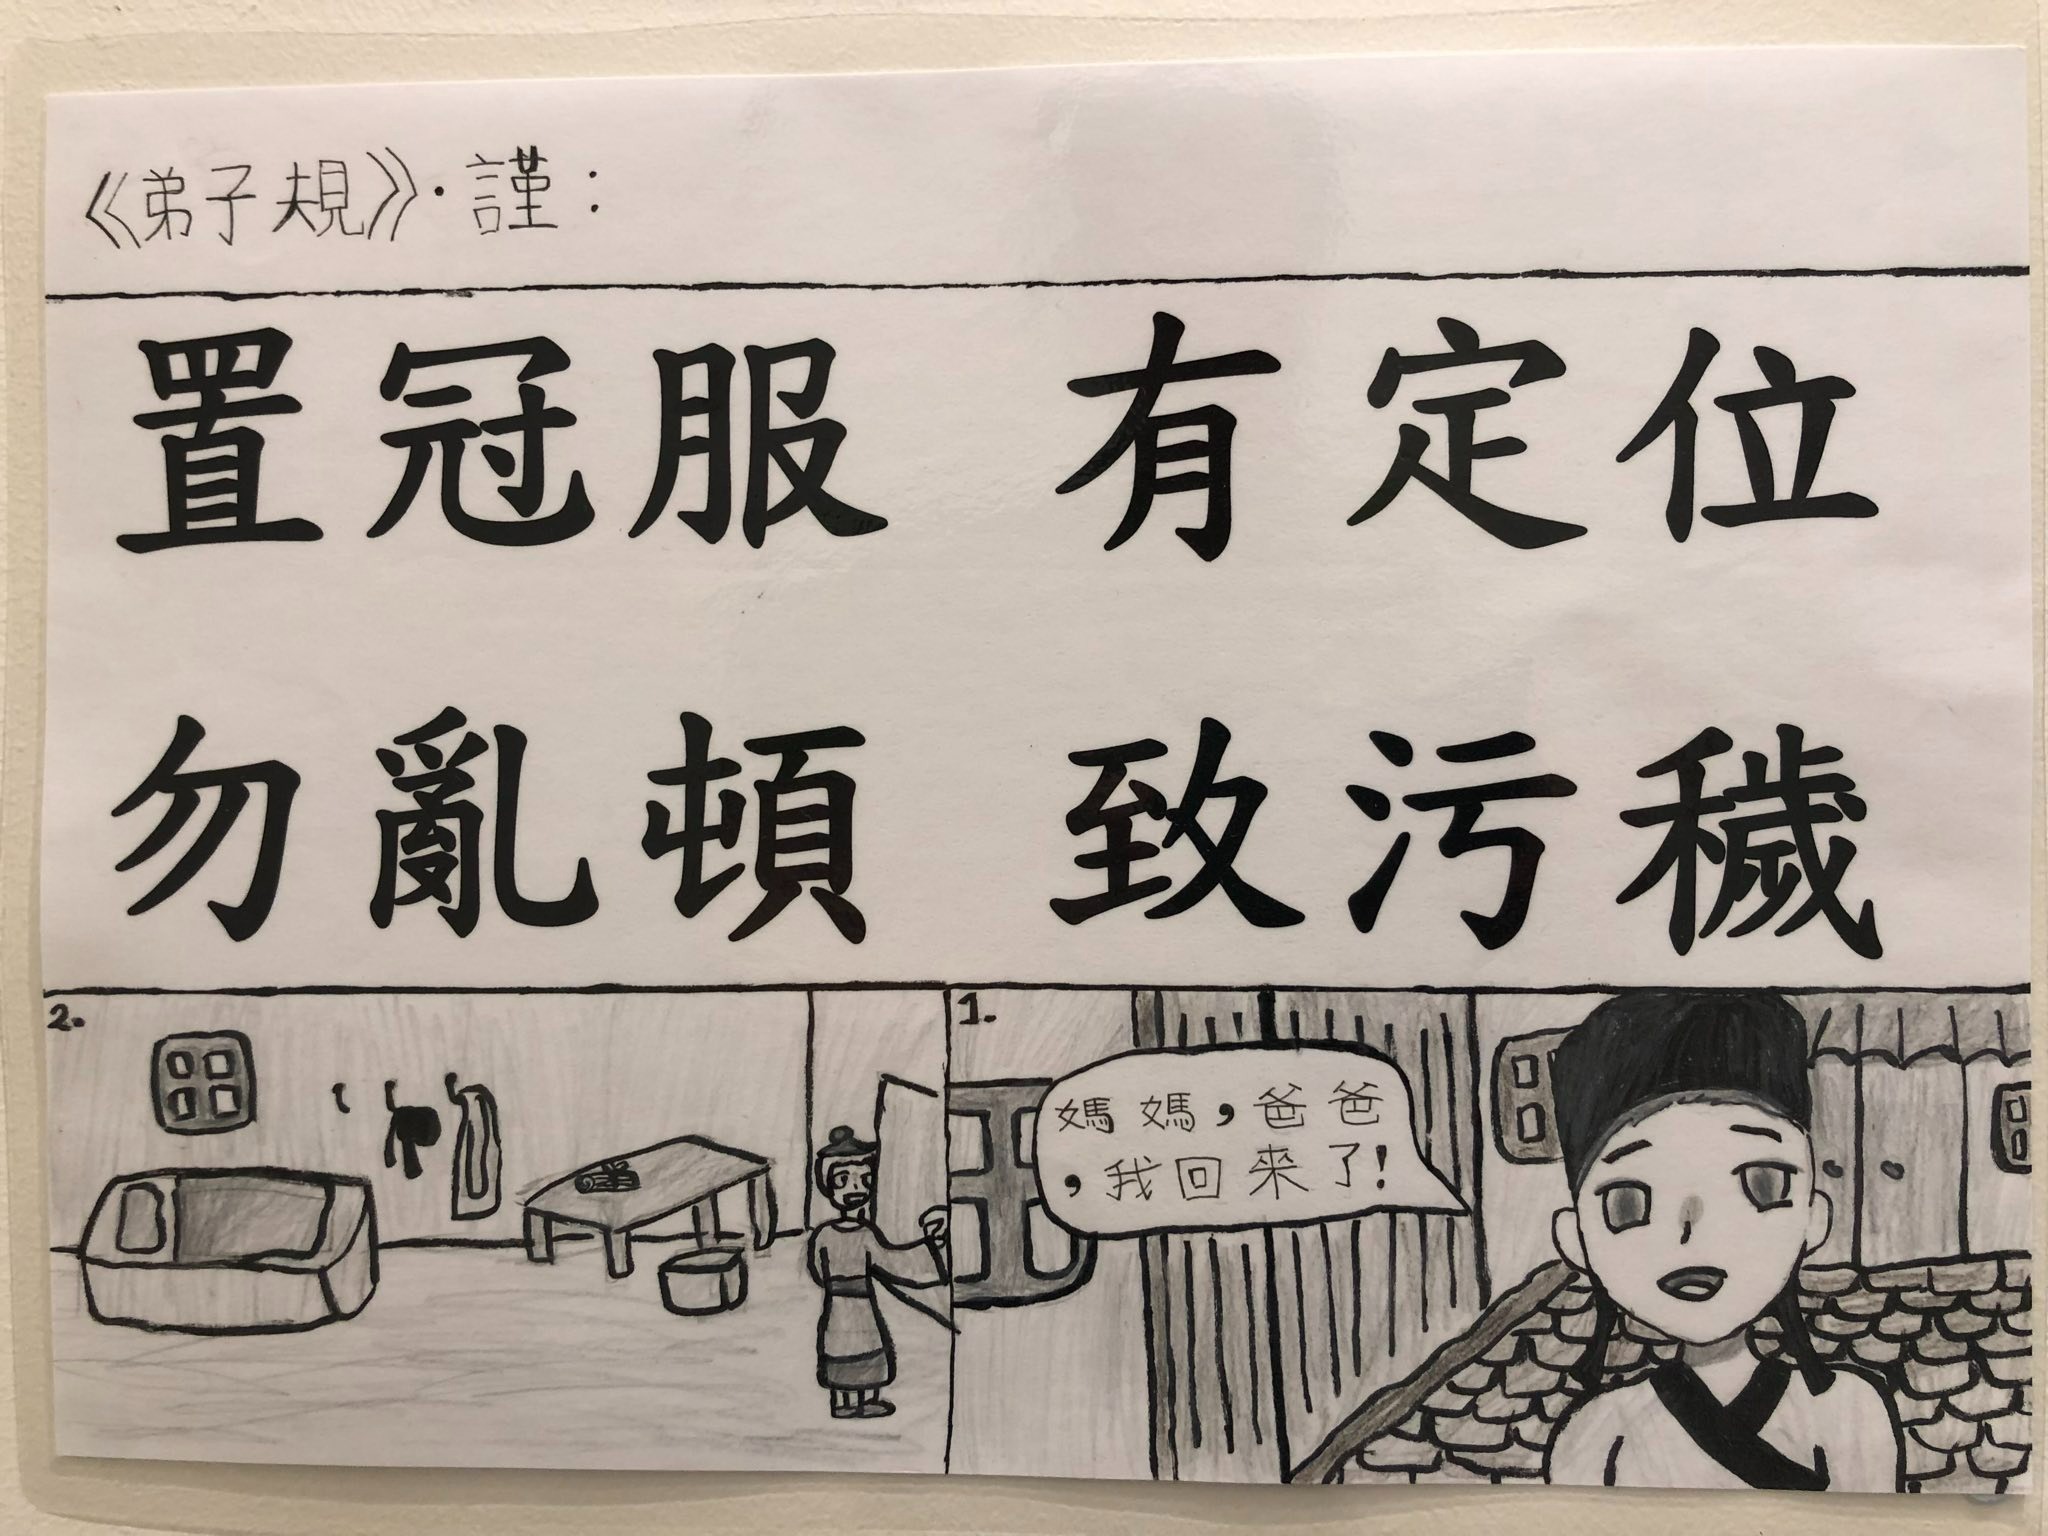 《弟子規》·謹：
置冠服　有定位
勿亂頓　致污穢
1.
媽媽，爸爸
，我回來了！
2.